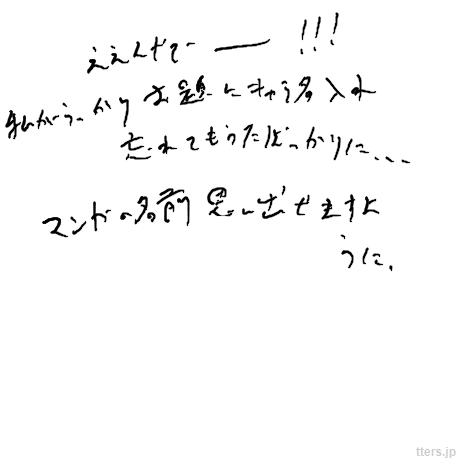 ええんだでー ー !!!
私がうっかりお題にキャラ名入れ
忘れてもうたばっかりに...
マンガの名前思い出せますよ
うに.
tters.jp